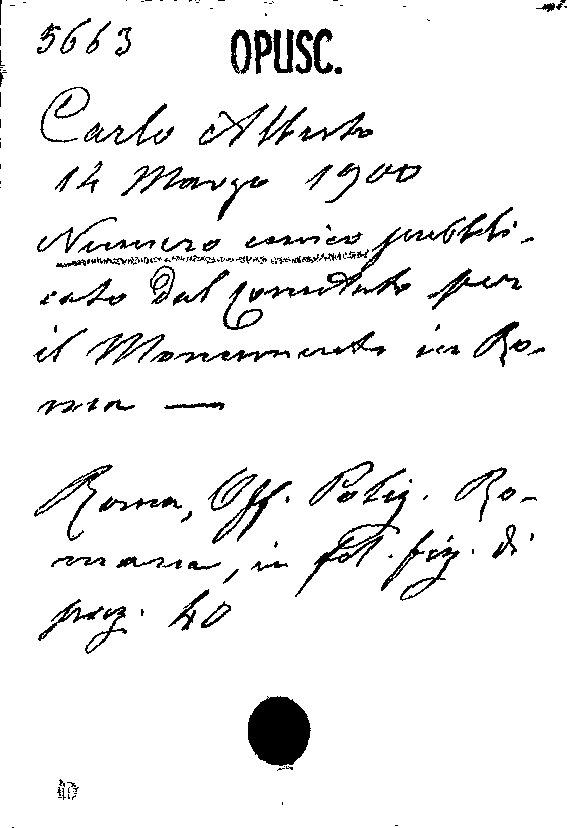 5663
OPUSC.
Carlo Alberto
14 Marzo 1900
Numero unico pubbli-
cato dal Comitato per
il Monumento in Ro-
ma —
Roma, Off. Polig. Ro-
mana, in fol. fig. di
pag. 40